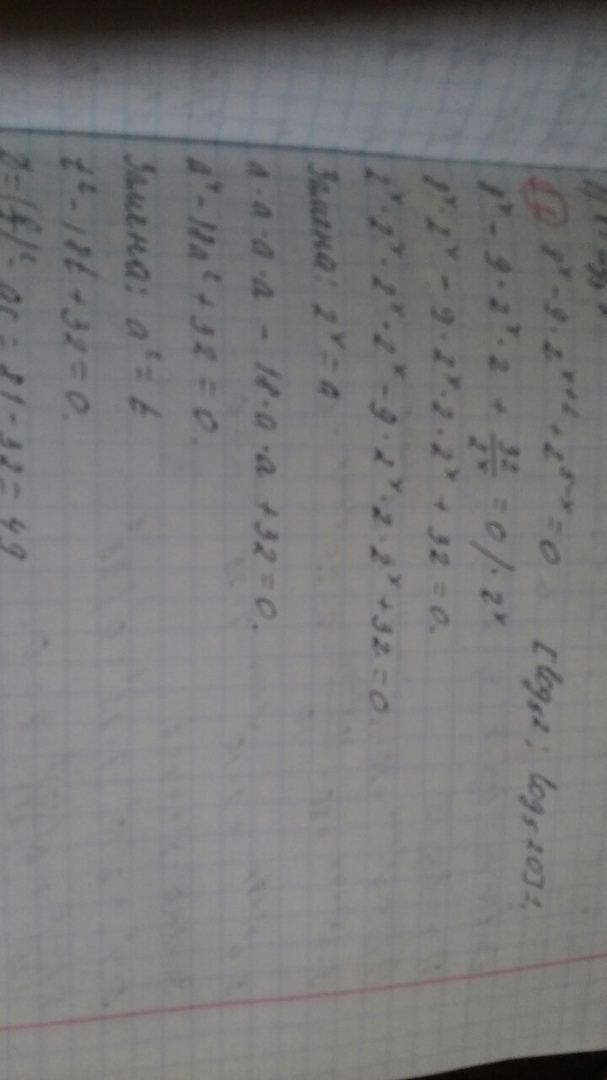 8ˣ - 9·2ˣ⁺¹ + 2⁵⁻ˣ = 0 [log₅2; log₅20].
8ˣ - 9·2ˣ·2 + 32/2ˣ = 0 /·2ˣ
8ˣ·2ˣ - 9·2ˣ·2·2ˣ + 32 = 0.
2ˣ·2ˣ·2ˣ·2ˣ - 9·2ˣ·2·2ˣ + 32 = 0.
Замена: 2ˣ = a
a·a·a·a - 18·a·a + 32 = 0.
a⁴ - 18a² + 32 = 0.
Замена: a² = t
t² - 18t + 32 = 0.
= 81 - 32 = 49